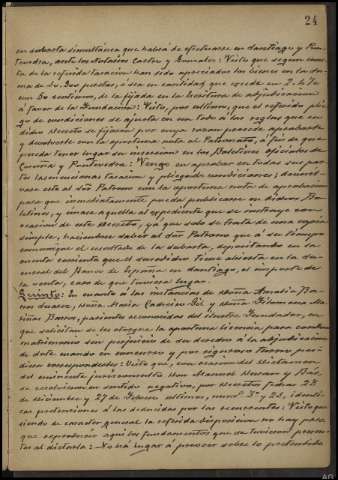 24
en subasta simultánea que habrá de efectuarse en Santiago y Pon-
tevedra, ante los Notarios Castro y Gonzalez: Visto que segun consta
de la referida tasación han sido apreciados los bienes en la su-
ma de
por la fijada en la Escritura de adjudicación
á favor de la Fundación: Visto, por último, que el referido plie-
go de condiciones se ajusta en un todo á las reglas que en
dicho Decreto se fijaron por cuya razon procede aprobarle
y devolverle con la oportuna nota al Patronato, á fin de que
pueda tener lugar su insercion en los Boletines oficiales de
Coruña y Pontevedra: Vengo en aprobar en todas sus par-
tes las mencionadas tasacion y pliego de condiciones; devuel-
vase esta al dho Patrono con la oportuna nota de aprobacion
para que inmediatamente pueda publicarse en dichos Bo-
letines, y únase aquella al expediente que se instruye con
ocasion de este decreto, ya que solo se trata de una copia
simple, haciendose saber al dho Patrono que á su tiempo
comunique el resultado de la subasta, depositando en la
cuenta corriente que el suscribidor tiene abierta en la Su-
cursal del Banco de España en Santiago, el importe de
la venta, caso de que tuviese lugar.
Quinto: En cuanto á las instancias de Doña Amalia Ba-
rros Suarez, Doña María Ladislao Gil y Doña Filomena Ma-
riñas Barros, parientes reconocidas del ilustre Fundador, en
que solicitan se les otorgue la oportuna licencia para contraer
matrimonio sin perjuicio de su derecho á la adjudicacion
de dote cuando en concurso y por riguroso turno pu-
diese corresponderles: Visto que, con ocasion del dictamen
del eminente jurisconsulto Don Manuel
se resolvieron en sentido negativo, por decretos fechas 28
de Diciembre y 27 de Febrero últimos, núms. 3º y 28, identi-
cas pretensiones á las deducidas por las recurrentes: Visto que
siendo de caracter general la referida disposicion no hay para
que reproducir aquí los fundamentos que se tuvieron presen-
tes al dictarla: No há lugar á proveer sobre lo pretendido